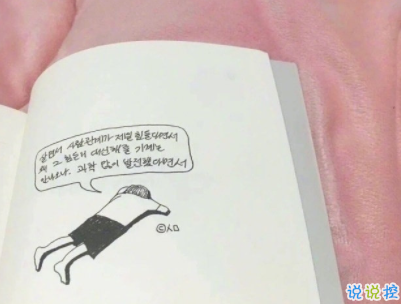 살면서 사람관계가 제일 힘들다면서
왜 그 힘든거 대신해줄 기계는
안나오냐. 과학 많이 발전했다면서
©시ㅁ
说说控